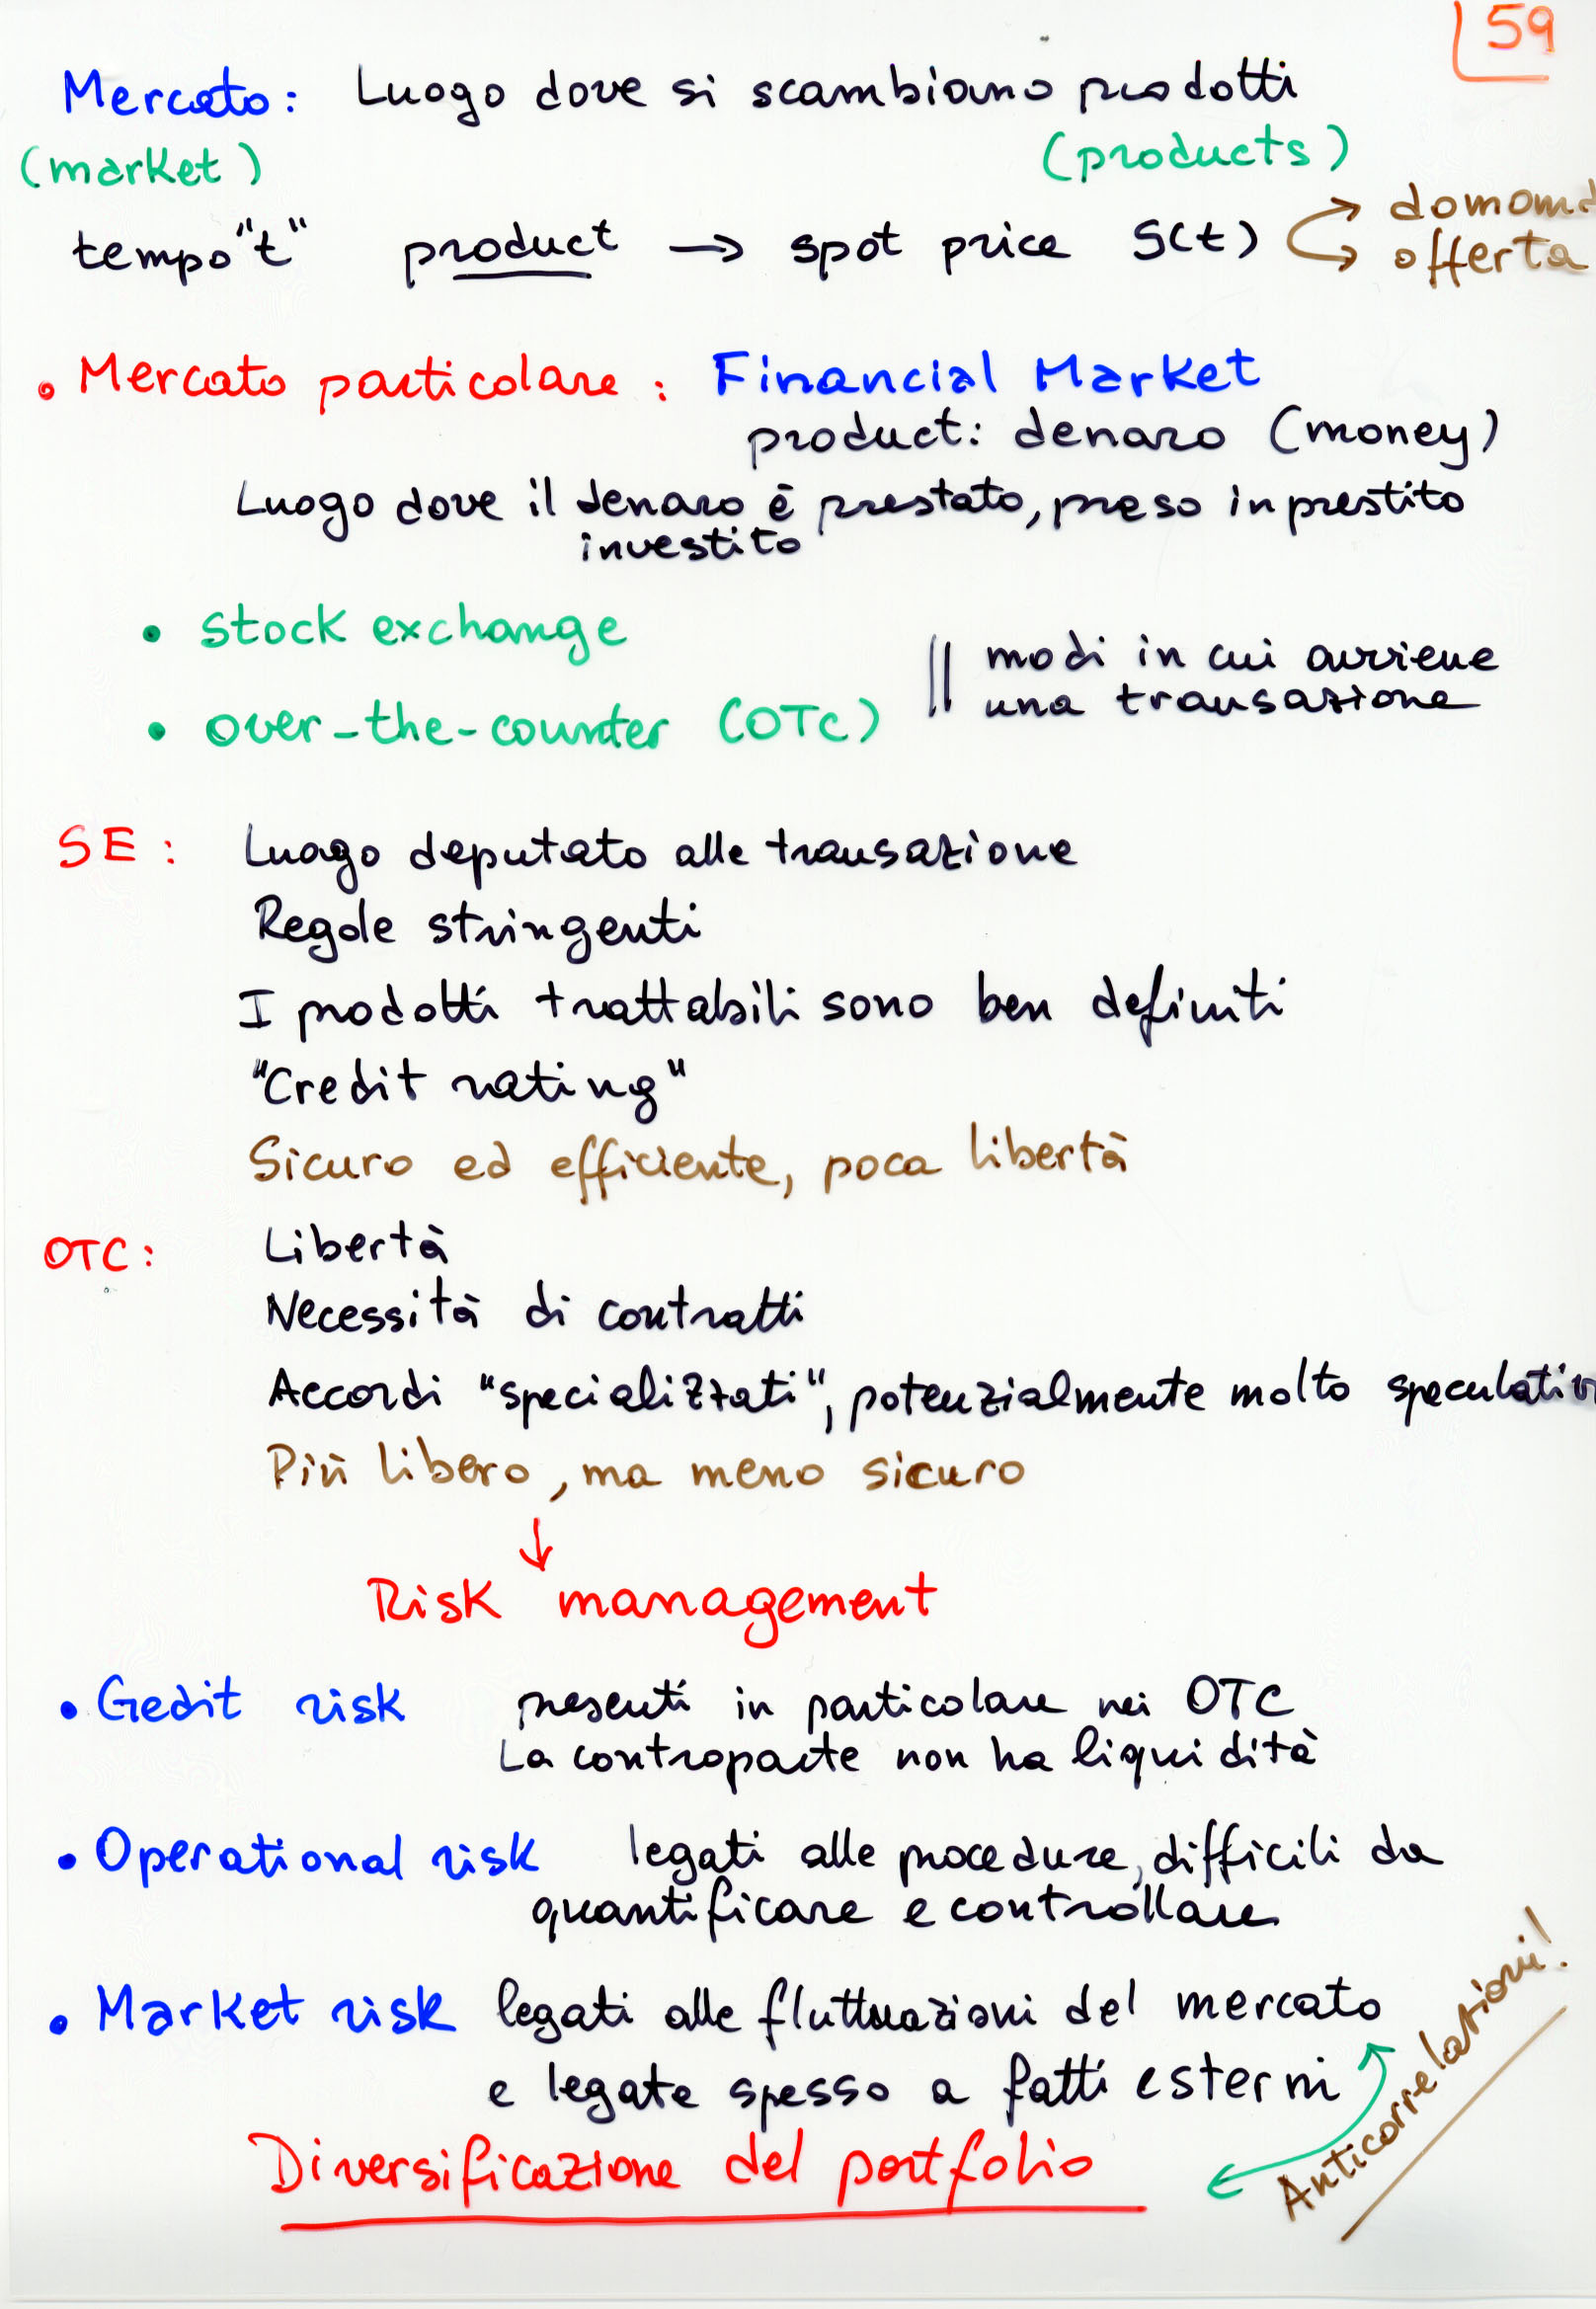 59
Mercato: Luogo dove si scambiano prodotti
(market) (products)
tempo "t" product → spot price S(t) domand
offerta
• Mercato particolare: Financial Market
product: denaro (money)
Luogo dove il denaro è prestato, preso in prestito
investito
• stock exchange
• over-the-counter (OTC)
|| modi in cui avviene
una transazione
SE: Luogo deputato alle transazione
Regole stringenti
I prodotti trattabili sono ben definiti
"Credit rating"
Sicuro ed efficiente, poca libertà
OTC: Libertà
Necessità di contratti
Accordi "specializzati", potenzialmente molto speculativ
Più libero, ma meno sicuro
↓
Risk management
• Credit risk presenti in particolare nei OTC
La controparte non ha liquidità
• Operational risk legati alle procedure, difficili da
quantificare e controllare
• Market risk legati alle fluttuazioni del mercato
e legate spesso a fatti esterni
Anticorrelationi!
Diversificazione del portfolio